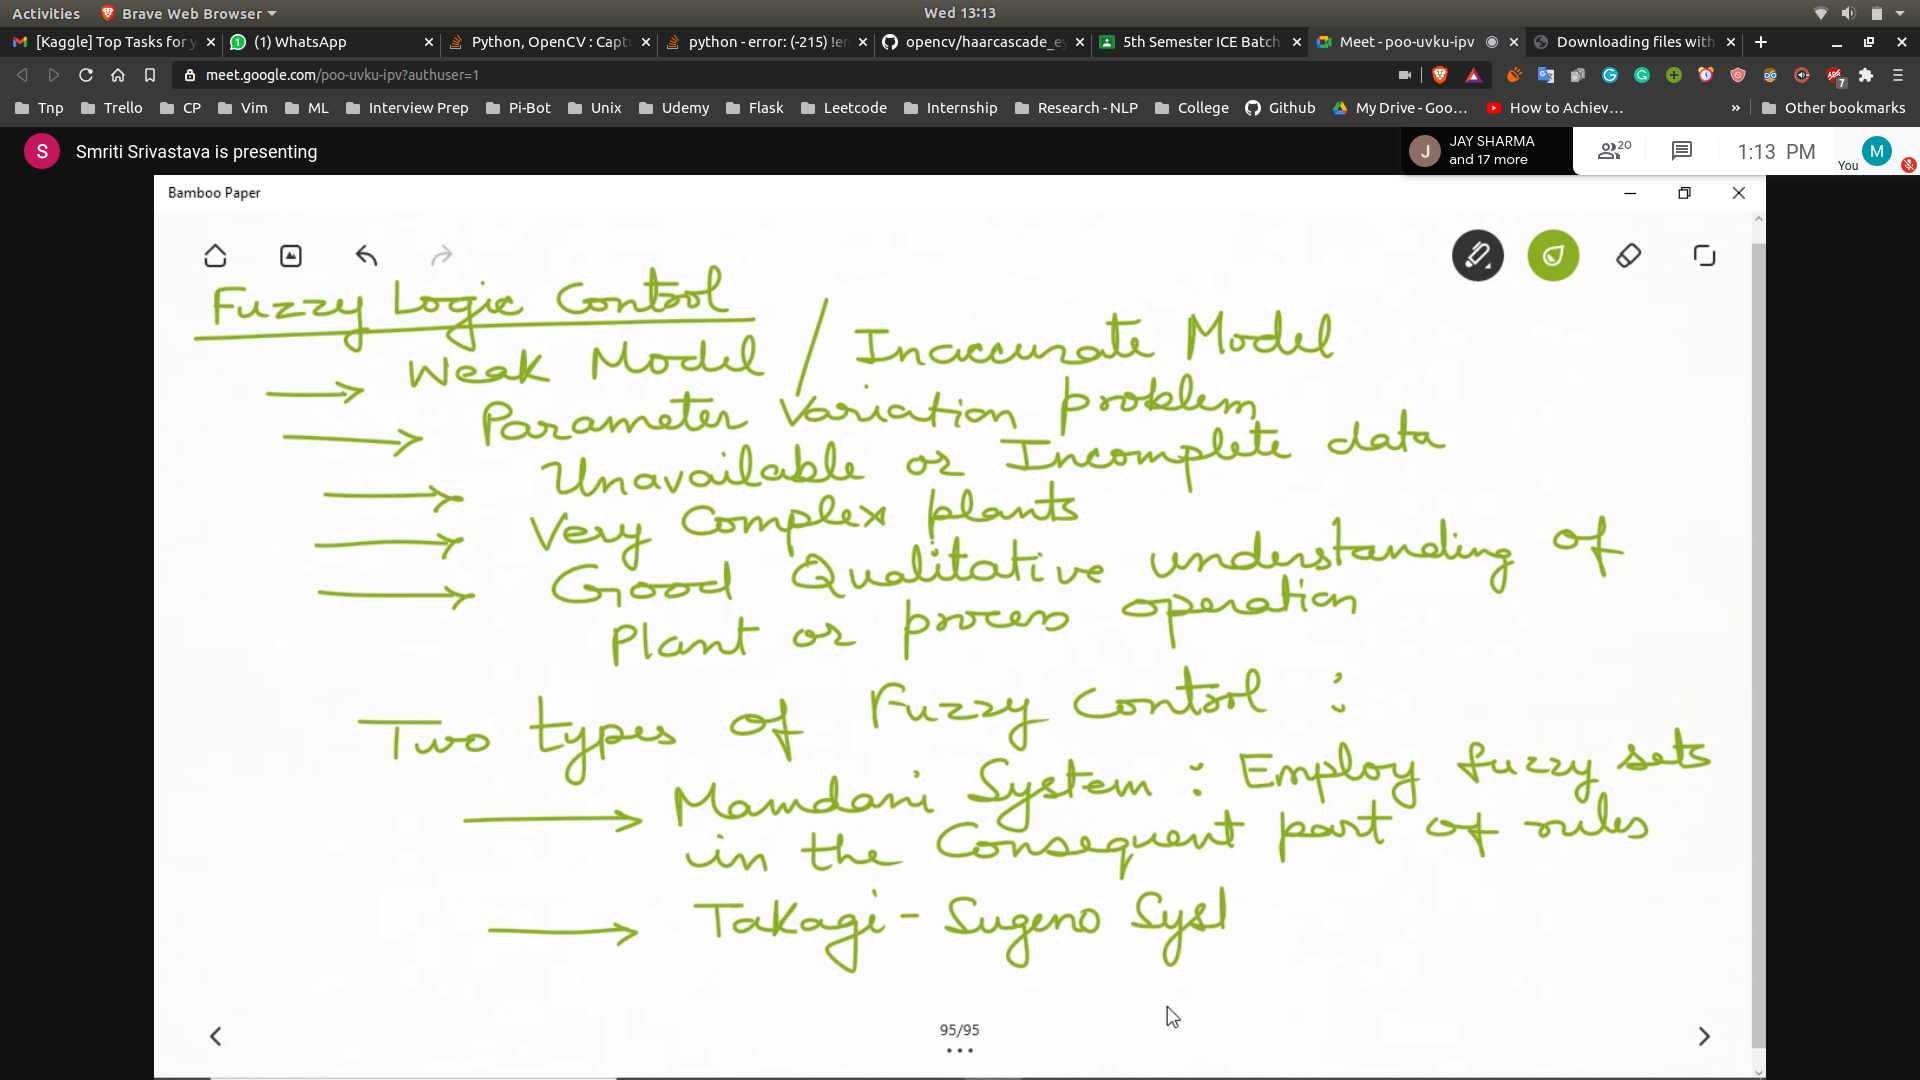 Activities Brave Web Browser Wed 13:13
[Kaggle] Top Tasks for y (1) WhatsApp Python, OpenCV : Captu python - error: (-215) !em opencv/haarcascade_ey 5th Semester ICE Batch Meet - poo-uvku-ipv Downloading files with
meet.google.com/poo-uvku-ipv?authuser=1 7
Tnp Trello CP Vim ML Interview Prep Pi-Bot Unix Udemy Flask Leetcode Internship Research - NLP College Github My Drive - Goo... How to Achiev... » Other bookmarks
S Smriti Srivastava is presenting J JAY SHARMA and 17 more 20 1:13 PM You M
Bamboo Paper
Fuzzy Logic Control
→ Weak Model / Inaccurate Model
→ Parameter Variation problem
→ Unavailable or Incomplete data
→ Very Complex plants
→ Good Qualitative understanding of
Plant or process operation
Two types of Fuzzy Control :
→ Mamdani System : Employ fuzzy sets
in the Consequent part of rules
→ Takagi - Sugeno Syst
95/95